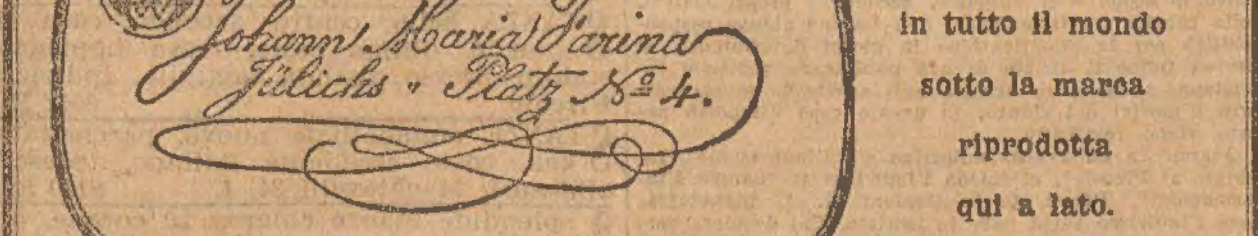 Johann Maria Farina
Jülichs - Platz No 4.
in tutto il mondo
sotto la marca
riprodotta
qui a lato.